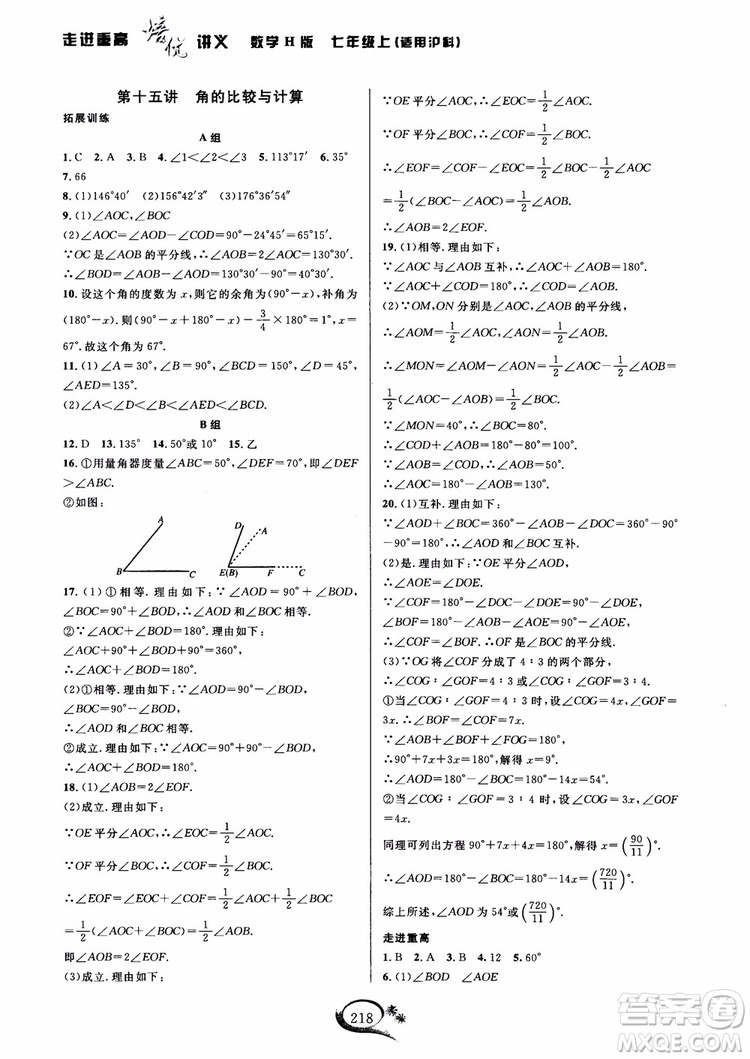 走进重高 培优 讲义 数学H版 七年级上(适用沪科)
第十五讲 角的比较与计算
拓展训练
A 组
1. C 2. A 3. B 4. ∠1<∠2<∠3 5. 113°17′ 6. 35°
7. 66
8. (1)146°40′ (2)156°42′3″ (3)104°51′54″
9. (1)∠AOC,∠BOC
(2)∠AOD-∠COD=90°-24°45′=65°15′.
∵OC是∠AOB的平分线,∴∠AOB=2∠AOC=130°30′.
∴∠BOD=∠AOB-∠AOD=130°30′-90°=40°30′.
10. 设这个角的度数为x,则它的余角为(90°-x),补角为
(180°-x). 则(90°-x)+(180°-x)-3/4×180°=1°,x=
67°. 故这个角为67°.
11. (1)∠A=30°,∠B=90°,∠BCD=150°,∠D=45°,
∠AED=135°.
(2)∠A<∠D<∠B<∠AED<∠BCD.
B 组
12. D 13. 135° 14. 50°或10° 15. 乙
16. ①用量角器度量∠ABC=50°,∠DEF=70°,即∠DEF
>∠ABC.
②如图:
A
B C
D A
E(B) F C
17. (1)①相等. 理由如下:∵∠AOD=90°+∠BOD,
∠BOC=90°+∠BOD,∴∠AOD=∠BOC.
②∠AOC+∠BOD=180°. 理由如下:
∵∠AOC+90°+∠BOD+90°=360°,
∴∠AOC+∠BOD=180°.
(2)①相等. 理由如下:∵∠AOD=90°-∠BOD,
∠BOC=90°-∠BOD,∴∠AOD=∠BOC.
②成立. 理由如下:∵∠AOC=90°+90°-∠BOD,
∴∠AOC+∠BOD=180°.
18. (1)∠AOB=2∠EOF.
(2)成立. 理由如下:
∵OE平分∠AOC,∴∠EOC=1/2∠AOC.
∵OF平分∠BOC,∴∠COF=1/2∠BOC.
∴∠EOF=∠EOC+∠COF=1/2∠AOC+1/2∠BOC
=1/2(∠AOC+∠BOC)=1/2∠AOB.
即∠AOB=2∠EOF.
(3)成立. 理由如下:
∵OE平分∠AOC,∴∠EOC=1/2∠AOC.
∵OF平分∠BOC,∴∠COF=1/2∠BOC.
∴∠EOF=∠EOC-∠COF=1/2∠AOC-1/2∠BOC
=1/2(∠AOC-∠BOC)=1/2∠AOB.
∴∠AOB=2∠EOF.
19. (1)相等. 理由如下:
∵∠AOC与∠AOB互补,∴∠AOC+∠AOB=180°.
∵∠AOC+∠BOD=180°,∴∠AOB=∠BOD.
(2)∵OM,ON分别是∠AOC,∠AOB的平分线,
∴∠AOM=1/2∠AOC,∠AON=1/2∠AOB.
∴∠MON=∠AOM-∠AON=1/2∠AOC-1/2∠AOB=
1/2(∠AOC-∠AOB)=1/2∠BOC.
∵∠MON=40°,∴∠BOC=80°.
∴∠COD+∠AOB=180°-80°=100°.
∵∠COD+∠AOC=180°,
∴∠AOC-∠AOB=80°,∴∠AOB=50°.
20. (1)互补. 理由如下:
∵∠AOD+∠BOC=360°-∠AOB-∠DOC=360°-
90°-90°=180°,∴∠AOD和∠BOC互补.
(2)是. 理由如下:∵OE平分∠AOD,
∴∠AOE=∠DOE.
∵∠COF=180°-∠DOC-∠DOE=90°-∠DOE,
∠BOF=180°-∠AOB-∠AOE=90°-∠AOE,
∴∠COF=∠BOF. ∴OF是∠BOC的平分线.
(3)∵OG将∠COF分成4:3的两个部分,
∴∠COG:∠GOF=4:3或∠COG:∠GOF=3:4.
①当∠COG:∠GOF=4:3时,设∠COG=4x,∠GOF=
3x. ∴∠BOF=∠COF=7x.
∵∠AOB+∠BOF+∠FOG=180°,
∴90°+7x+3x=180°. 解得x=9°.
∴∠AOD=180°-∠BOC=180°-14x=54°.
②当∠COG:∠GOF=3:4时,设∠COG=3x,∠GOF=
4x.
同理可列出方程90°+7x+4x=180°,解得x=(90/11)°.
∴∠AOD=180°-∠BOC=180°-14x=(720/11)°.
综上所述,∠AOD为54°或(720/11)°.
走进重高
1. B 2. A 3. B 4. 12 5. 60°
6. (1)∠BOD ∠AOE
218
答案圈
MXQE.COM